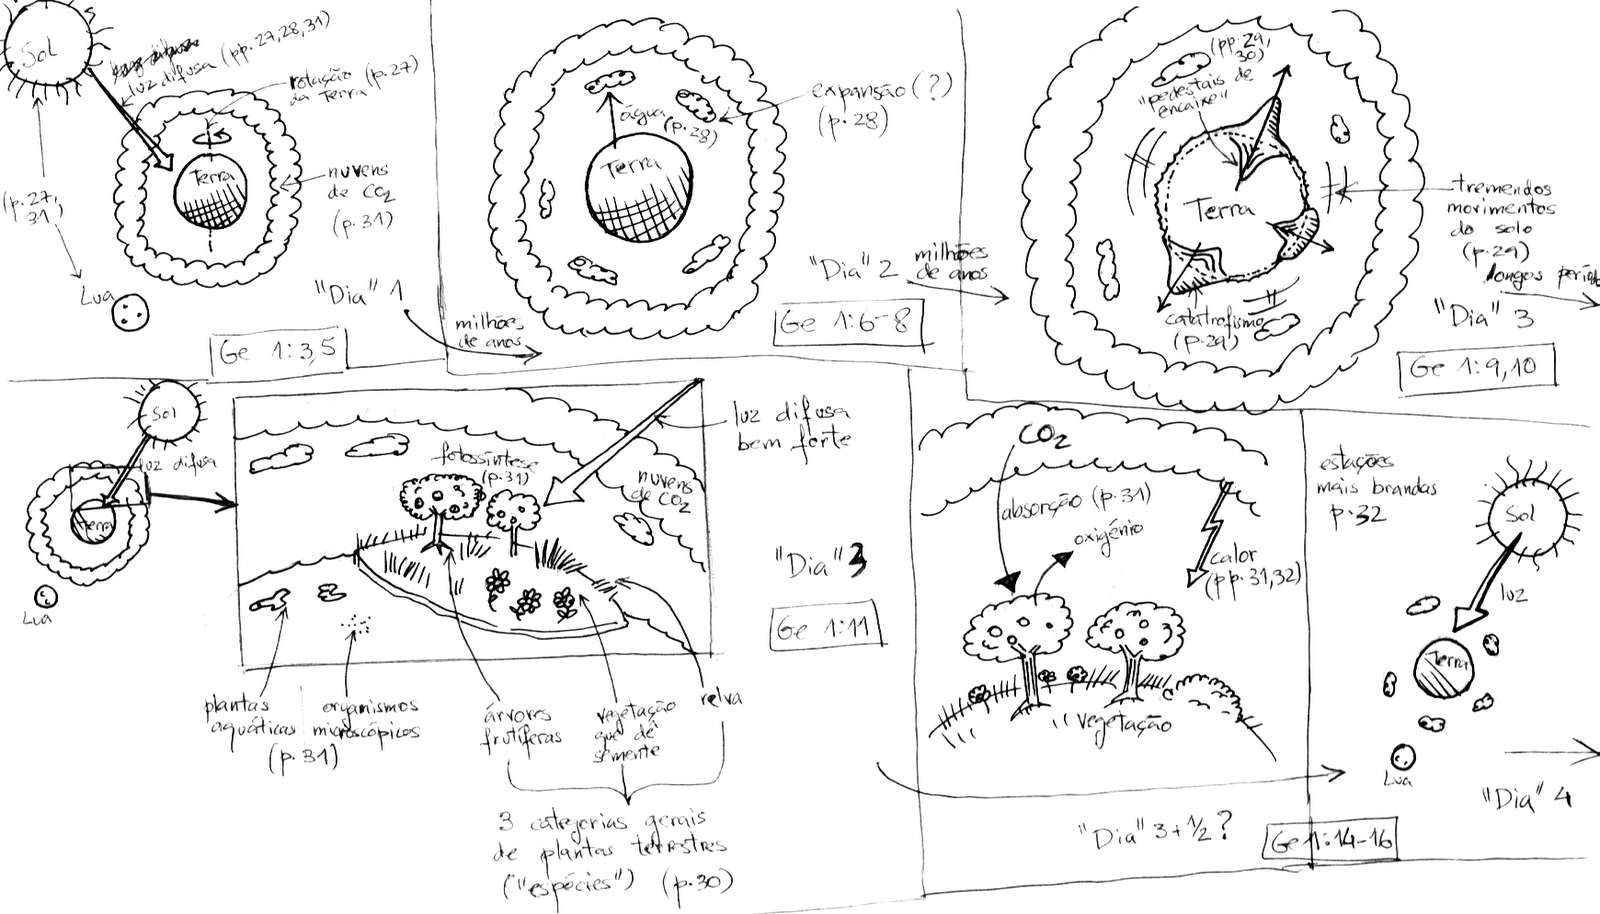 Sol
luz difusa (pp. 27,28,31)
rotação (p.27)
da Terra
Terra
nuvens
de CO2
(p.31)
(p.27,
31)
Lua
"Dia" 1
Ge 1:3,5
milhões
de anos
água
(p.28)
Terra
expansão (?)
(p.28)
"Dia" 2
Ge 1:6-8
milhões
de anos
(pp.29,
30)
"pedestais de
encaixe"
Terra
tremendos
movimentos
do solo
(p.29)
catatrofismo
(p.29)
longos períod
"Dia" 3
Ge 1:9,10
Sol
luz difusa
Terra
Lua
fotossíntese
(p.31)
nuvens
de CO2
luz difusa
bem forte
"Dia" 3
Ge 1:11
plantas
aquáticas
organismos
microscópicos
(p.31)
árvores
frutíferas
vegetação
que dê
semente
relva
3 categorias gerais
de plantas terrestres
("espécies") (p.30)
CO2
absorção (p.31)
oxigénio
calor
(pp.31,32)
vegetação
"Dia" 3+1/2?
Ge 1:14-16
estações
mais brandas
p.32
Sol
luz
Terra
Lua
"Dia" 4